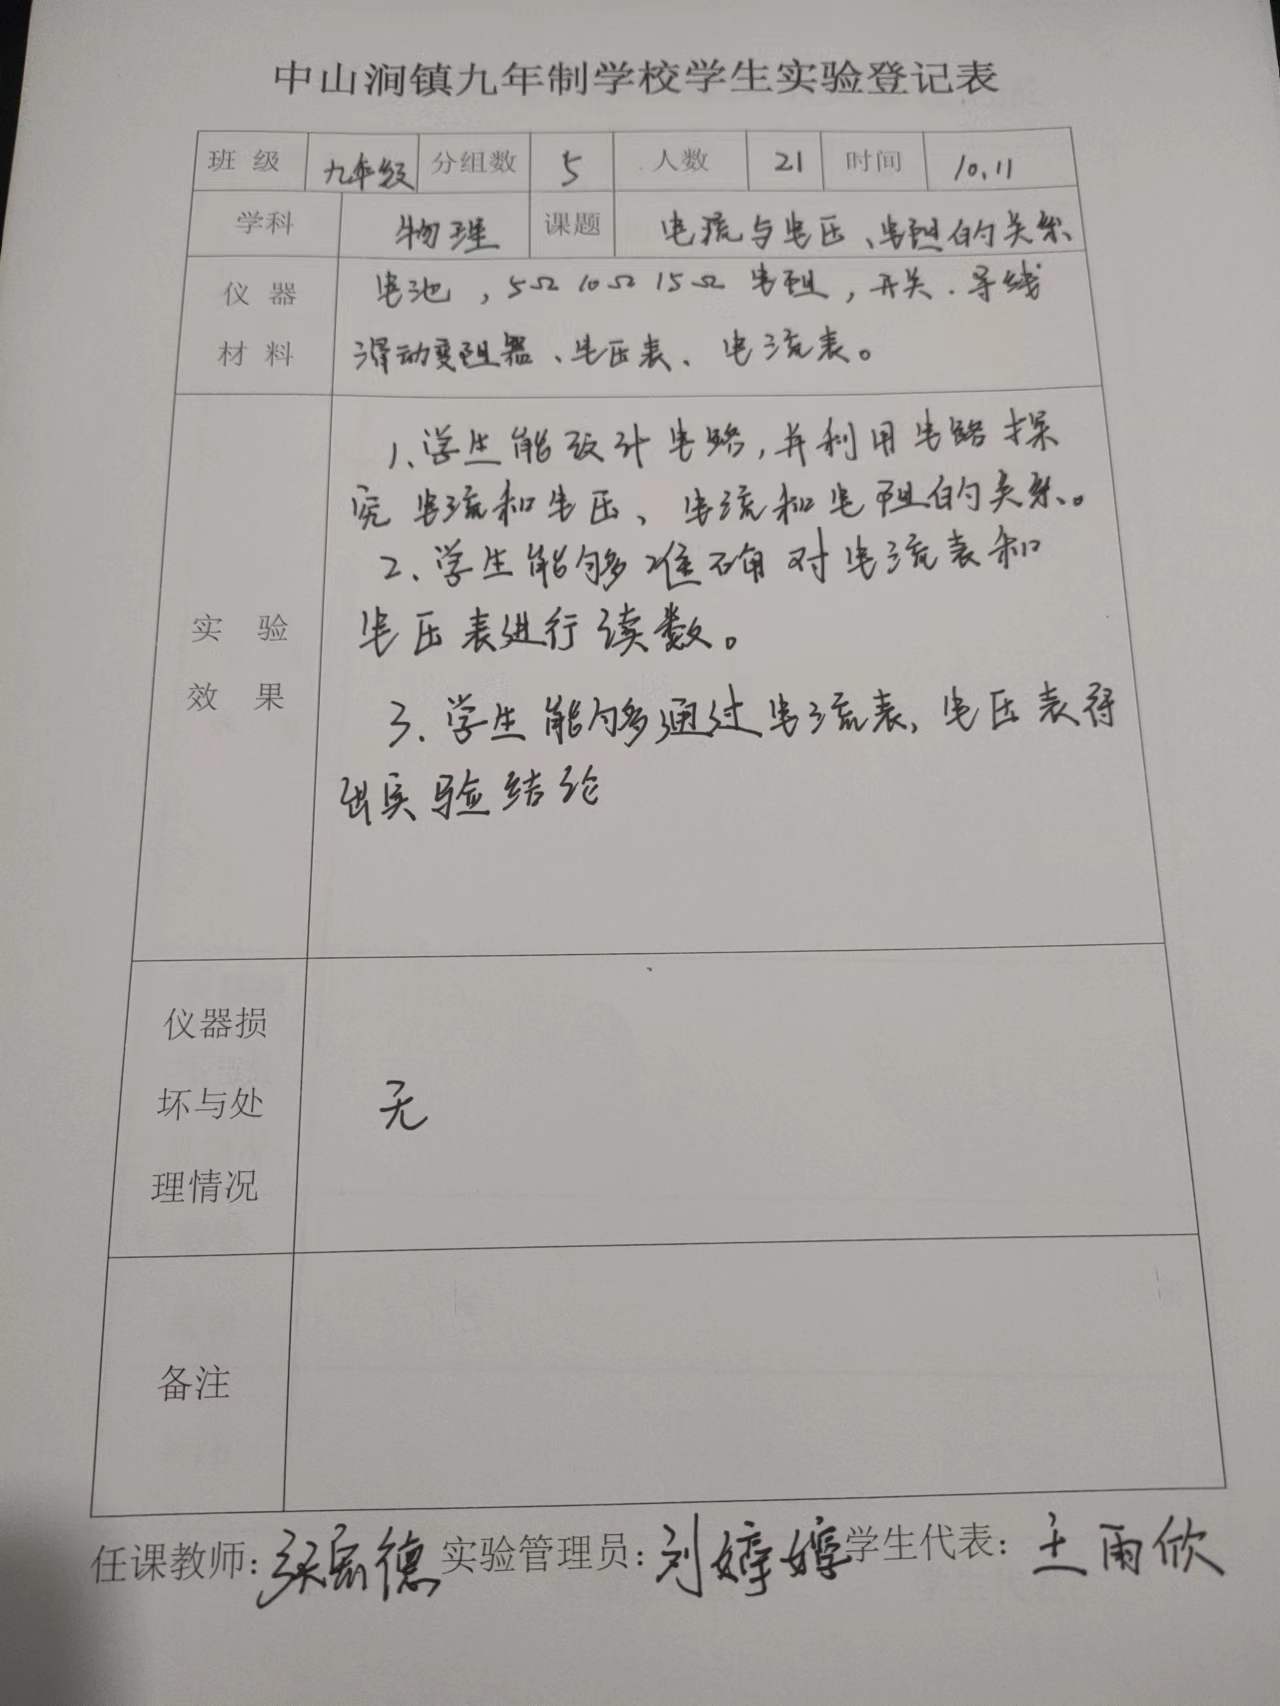 中山涧镇九年制学校学生实验登记表
班 级 九年级 分组数 5 人数 21 时间 10.11
学科 物理 课题 电流与电压、电阻的关系
仪 器 电池，5Ω 10Ω 15Ω 电阻，开关．导线
材 料 滑动变阻器、电压表、电流表。
1、学生能设计电路，并利用电路探
究电流和电压、电流和电阻的关系。
2、学生能够准确对电流表和
实 验 电压表进行读数。
效 果 3、学生能够通过电流表，电压表得
出实验结论
仪器损
坏与处 无
理情况
备注
任课教师：张德 实验管理员：刘婷婷 学生代表：王雨欣